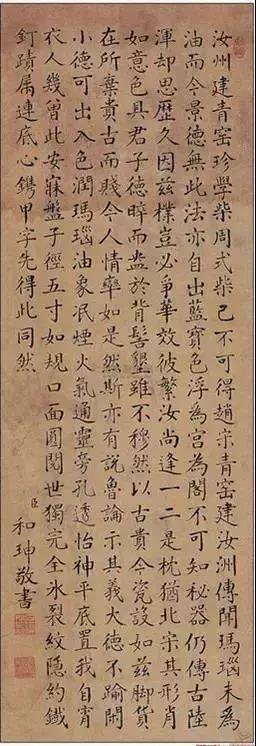 汝州建青窑珍學柴周式柴已不可得趙宋青窑建汝洲傳聞瑪瑙末為
油而今景德無此法亦自出藍寶色浮為宫為閣不可知秘器仍傳古陸
渾却思歷久因兹樸豈必爭華效彼繁汝尚逢一二是枕猶北宗其形肖
如意色具君子德晬而盎於背髻墾雖不穆然以古貴今瓷設如兹脚貨
在所棄貴古而賤今人情率如是然斯亦有說魯論示其義大德不踰閑
小德可出入色潤瑪瑙油象泯煙火氣通靈旁孔透怡神平底置我自宵
衣人幾曾此安寐盤子徑五寸如規口面圓閱世獨完全氷裂紋隱約鐵
釘蹟属連底心鐫甲字先得此同然
臣和珅敬書